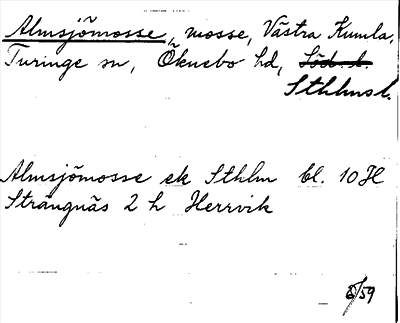 Almsjömosse, mosse, Västra Kumla,
Turinge sn, Öknebo hd, Söd. l.
Sthlmsl.
Almsjömosse ek Sthlm bl. 10 H
Strängnäs 2 h Herrvik
8/59